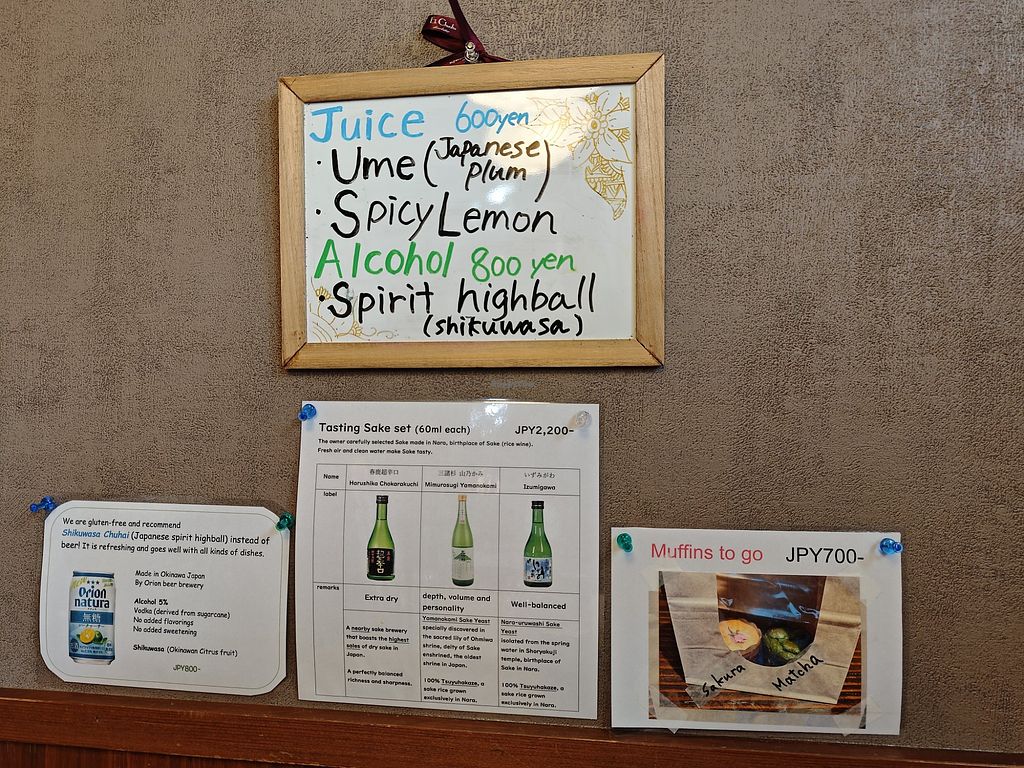 Juice 600yen
・Ume (Japanese plum)
・Spicy Lemon
Alcohol 800 yen
・Spirit highball
(shikuwasa)
Tasting Sake set (60ml each) JPY2,200-
The owner carefully selected Sake made in Nara, birthplace of Sake (rice wine).
Fresh air and clean water make Sake tasty.
Name
春鹿超辛口
Harushika Chokarakuchi
三諸杉 山乃かみ
Mimurosugi Yamanokami
いずみがわ
Izumigawa
label
remarks
Extra dry
A nearby sake brewery
that boasts the highest
sales of dry sake in
Japan.
A perfectly balanced
richness and sharpness.
depth, volume and
personality
Yamanokami Sake Yeast
specially discovered in
the sacred lily of Ohmiwa
shrine, deity of Sake
enshrined, the oldest
shrine in Japan.
100% Tsuyuhakaze, a
sake rice grown
exclusively in Nara.
Well-balanced
Nara-uruwashi Sake
Yeast
isolated from the spring
water in Shoryakuji
temple, birthplace of
Sake in Nara.
100% Tsuyuhakaze, a
sake rice grown
exclusively in Nara.
We are gluten-free and recommend
Shikuwasa Chuhai (Japanese spirit highball) instead of
beer! It is refreshing and goes well with all kinds of dishes.
Orion
natura
無糖
Made in Okinawa Japan
By Orion beer brewery
Alcohol 5%
Vodka (derived from sugarcane)
No added flavorings
No added sweetening
Shikuwasa (Okinawan Citrus fruit)
JPY800-
Muffins to go JPY700-
Sakura
Matcha